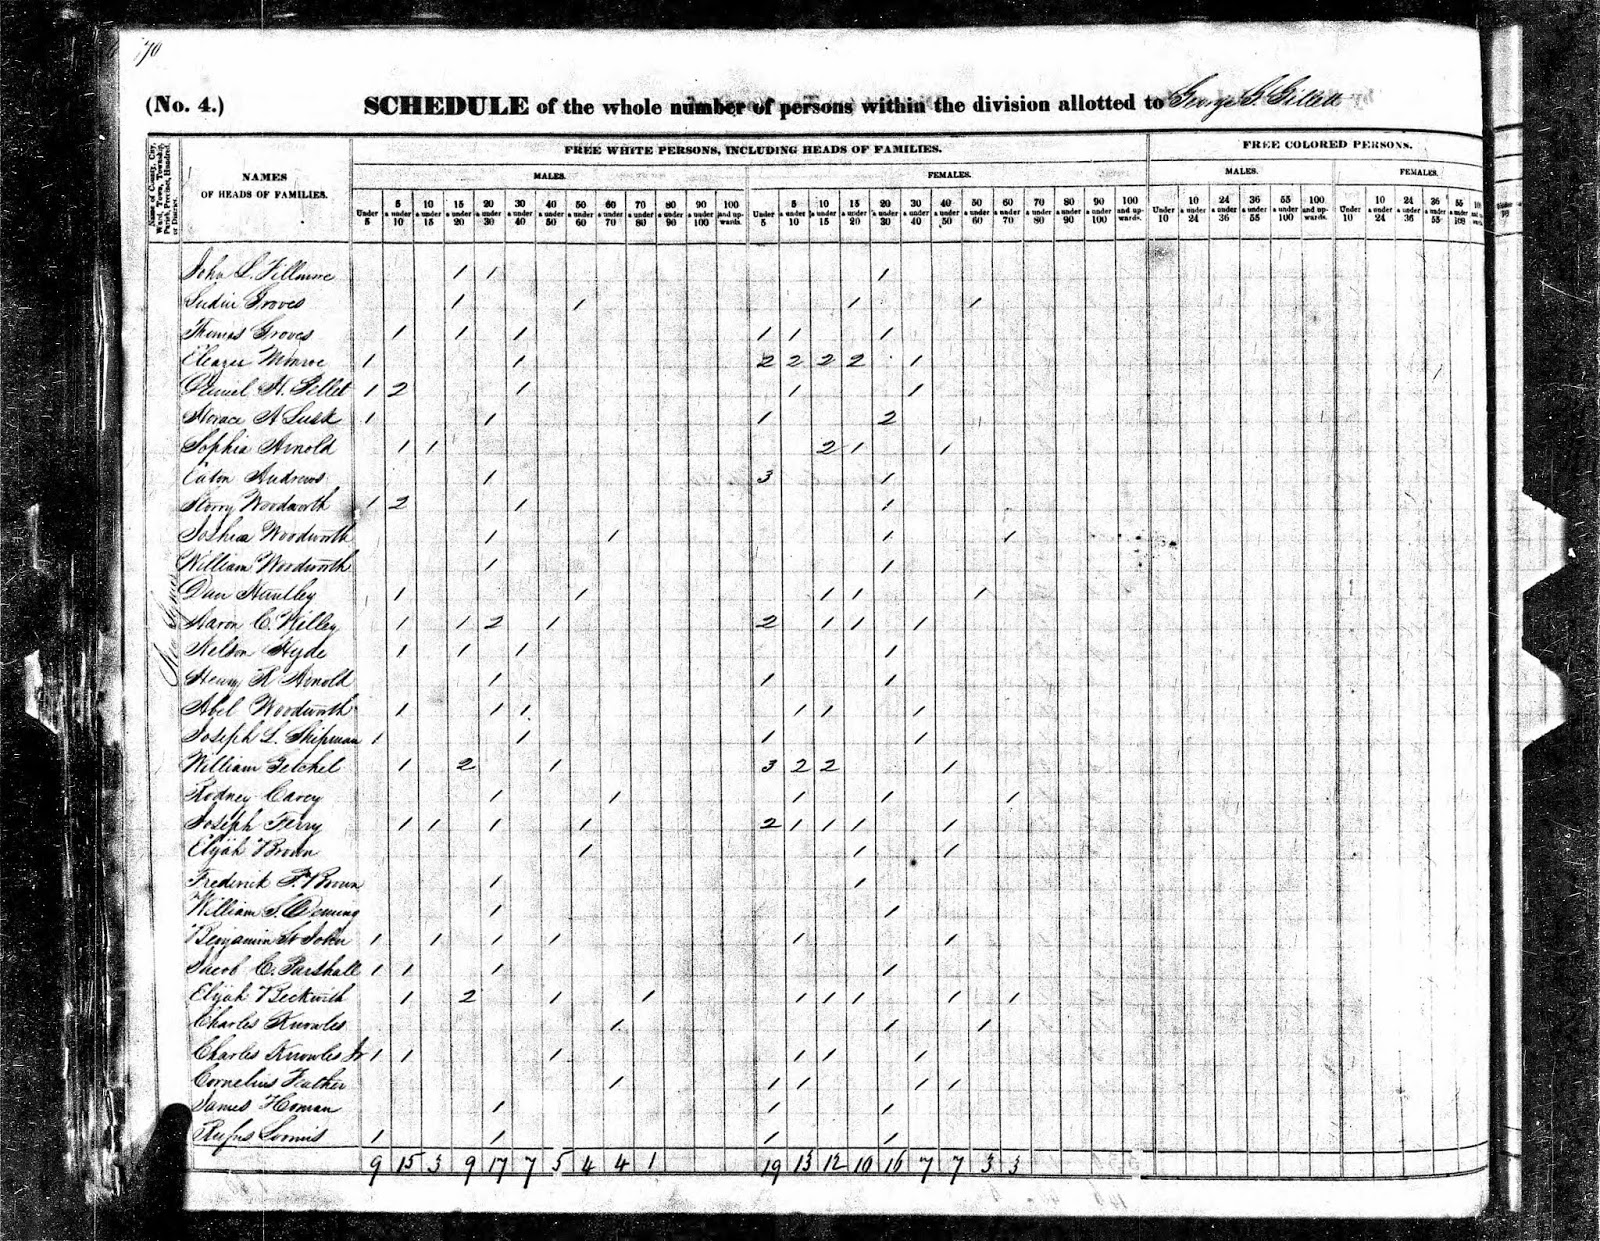 70
(No. 4.) SCHEDULE of the whole number of persons within the division allotted to George G. Gillett
Name of County, City, Ward, Town, Township, Parish, Precinct, Hundred, or District.
NAMES
OF HEADS OF FAMILIES.
FREE WHITE PERSONS, INCLUDING HEADS OF FAMILIES.
FREE COLORED PERSONS.
MALES. FEMALES. MALES. FEMALES.
Under 5 | 5 & under 10 | 10 & under 15 | 15 & under 20 | 20 & under 30 | 30 & under 40 | 40 & under 50 | 50 & under 60 | 60 & under 70 | 70 & under 80 | 80 & under 90 | 90 & under 100 | 100 and upwards. | Under 5 | 5 & under 10 | 10 & under 15 | 15 & under 20 | 20 & under 30 | 30 & under 40 | 40 & under 50 | 50 & under 60 | 60 & under 70 | 70 & under 80 | 80 & under 90 | 90 & under 100 | 100 and upwards. | Under 10 | 10 & under 24 | 24 & under 36 | 36 & under 55 | 55 & under 100 | 100 and upwards. | Under 10 | 10 & under 24 | 24 & under 36 | 36 & under 55 | 55 & under 100
John L. Fillmore 1 1 1
Groves 1 1 1 1
Thomas Groves 1 1 1 1 1 1
Eleazer Monroe 1 1 2 2 2 2 1
Daniel H. Gillet 1 2 1 1 1
Horace A Lusk 1 1 1 2
Sophia Arnold 1 1 2 1 1
Eaton Andrews 1 3 1
Storry Woodworth 1 2 1 1
Joshua Woodworth 1 1 1 1
William Woodworth 1 1
Dan Huntley 1 1 1 1 1
Aaron C. Willey 1 1 2 1 2 1 1 1
Nelson Hyde 1 1 1 1
Henry R Arnold 1 1 1
Abel Woodworth 1 1 1 1 1 1
Joseph L. Shipman 1 1 1 1
William Getchel 1 2 1 3 2 2 1
Rodney Carey 1 1 1 1 1
Joseph Ferry 1 1 1 1 2 1 1 1 1
Elijah Brown 1 1 1
Frederick F. Brown 1 1
William S. Deming 1 1
Benjamin St John 1 1 1 1 1 1
Jacob C. Parshall 1 1 1 1
Elijah Beckwith 1 2 1 1 1 1 1 1 1
Charles Knowles 1 1 1
Charles Knowles Jr 1 1 1 1 1 1
Cornelius Feather 1 1 1 1 1
James Homan 1 1 1
Rufus Loomis 1 1 1 1
9 15 3 9 17 7 5 4 4 1 19 13 12 10 16 7 7 3 3